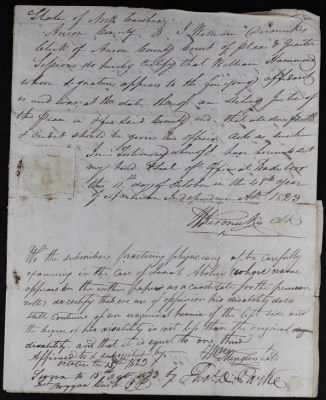 State of North Carolina
Anson County } I William Dismukes
Clerk of Anson County Court of Pleas & Quarter
Sessions do hereby Certify that William Hammond
whose signature appears to the foregoing affidavit
is and was at the date thereof an Acting Justice of
the Peace in & for said County and that all due faith
& credit should be given his official Acts as such
In Testimony whereof I have hereunto set
my hand & Seal of Office at Wadesboro
this 11th day of October in the 48th year
of American Independence AD. 1823
W Dismukes clk
We the subscribers practising physicians after carefully
examining in the Case of (whose name
appears on the within papers as a candidate for the pension
roll) do certify that we are of opinion his disability does
still continue of an inguinal hernia of the left side and
the degree of his disability is not less than the original
disability and that it is equal to one third
Affirmed to & subscribed by
October the 1823
Sworn to 15 1823 by Thos.